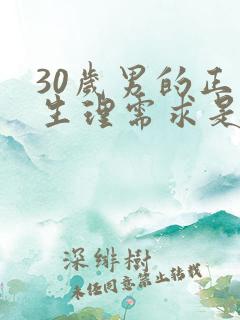 30歲男的正
生理需求是
深緋樹
未经同意禁止转载